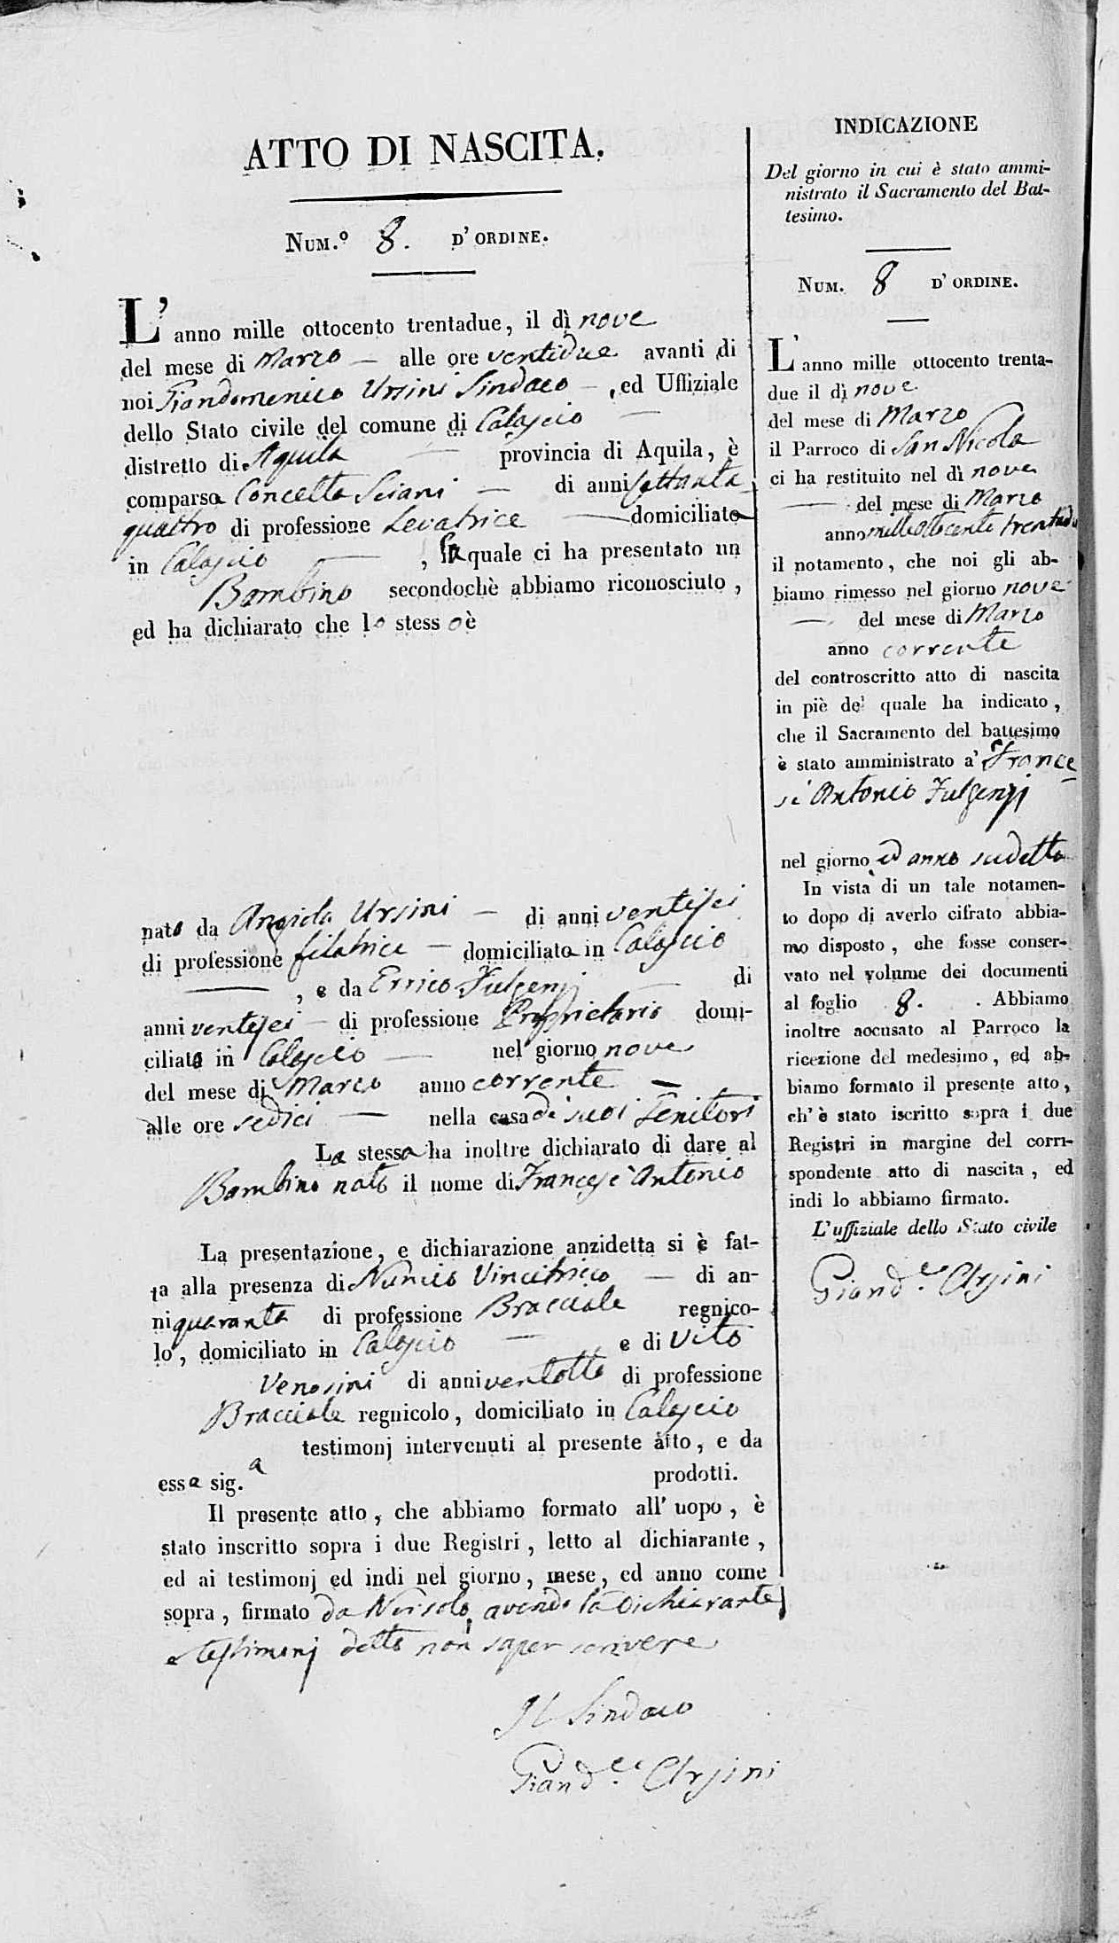 ATTO DI NASCITA.
NUM.º 8. D'ORDINE.
L'anno mille ottocento trentadue, il dì nove
del mese di Marzo — alle ore ventidue avanti di
noi Giandomenico Ursini Sindaco —, ed Uffiziale
dello Stato civile del comune di Calascio —
distretto di Aquila — provincia di Aquila, è
comparsa Concetta Sciani — di anni settanta
quattro di professione Levatrice — domiciliata
in Calascio — , la quale ci ha presentato un
Bambino secondochè abbiamo riconosciuto,
ed ha dichiarato che lo stesso è
nato da Angiola Ursini — di anni ventisei
di professione filatrice — domiciliata in Calascio
— , e da Errico Fulgenzj — di
anni ventisei — di professione Proprietario domi-
ciliato in Calascio — nel giorno nove
del mese di Marzo anno corrente —
alle ore sedici — nella casa di suoi Genitori
La stessa ha inoltre dichiarato di dare al
Bambino nato il nome di Francesc' Antonio
La presentazione, e dichiarazione anzidetta si è fat-
ta alla presenza di Nunzio — di an-
ni quaranta di professione Bracciale regnico-
lo, domiciliato in Calascio — e di Vito
Venosini di anni ventotto di professione
Bracciale regnicolo, domiciliato in Calascio
testimonj intervenuti al presente atto, e da
essa sig.a prodotti.
Il presente atto, che abbiamo formato all'uopo, è
stato inscritto sopra i due Registri, letto al dichiarante,
ed ai testimonj ed indi nel giorno, mese, ed anno come
sopra, firmato da Noi solo, avendo la Dichiarante,
e testimonj detto non saper scrivere
Il Sindaco
Giand.co Ursini
INDICAZIONE
Del giorno in cui è stato ammi-
nistrato il Sacramento del Bat-
tesimo.
NUM. 8 D'ORDINE.
L'anno mille ottocento trenta-
due il dì nove
del mese di Marzo
il Parroco di San Nicola
ci ha restituito nel dì nove
— del mese di Marzo
anno milleottocento trentadue
il notamento, che noi gli ab-
biamo rimesso nel giorno nove
— del mese di Marzo
anno corrente
del controscritto atto di nascita
in piè del quale ha indicato,
che il Sacramento del battesimo
è stato amministrato a' France
sc' Antonio Fulgenzj
nel giorno ed anno sudetto
In vista di un tale notamen-
to dopo di averlo cifrato abbia-
mo disposto, che fosse conser-
vato nel volume dei documenti
al foglio 8. . Abbiamo
inoltre accusato al Parroco la
ricezione del medesimo, ed ab-
biamo formato il presente atto,
ch'è stato iscritto sopra i due
Registri in margine del corri-
spondente atto di nascita, ed
indi lo abbiamo firmato.
L'uffiziale dello Stato civile
Giand.co Ursini